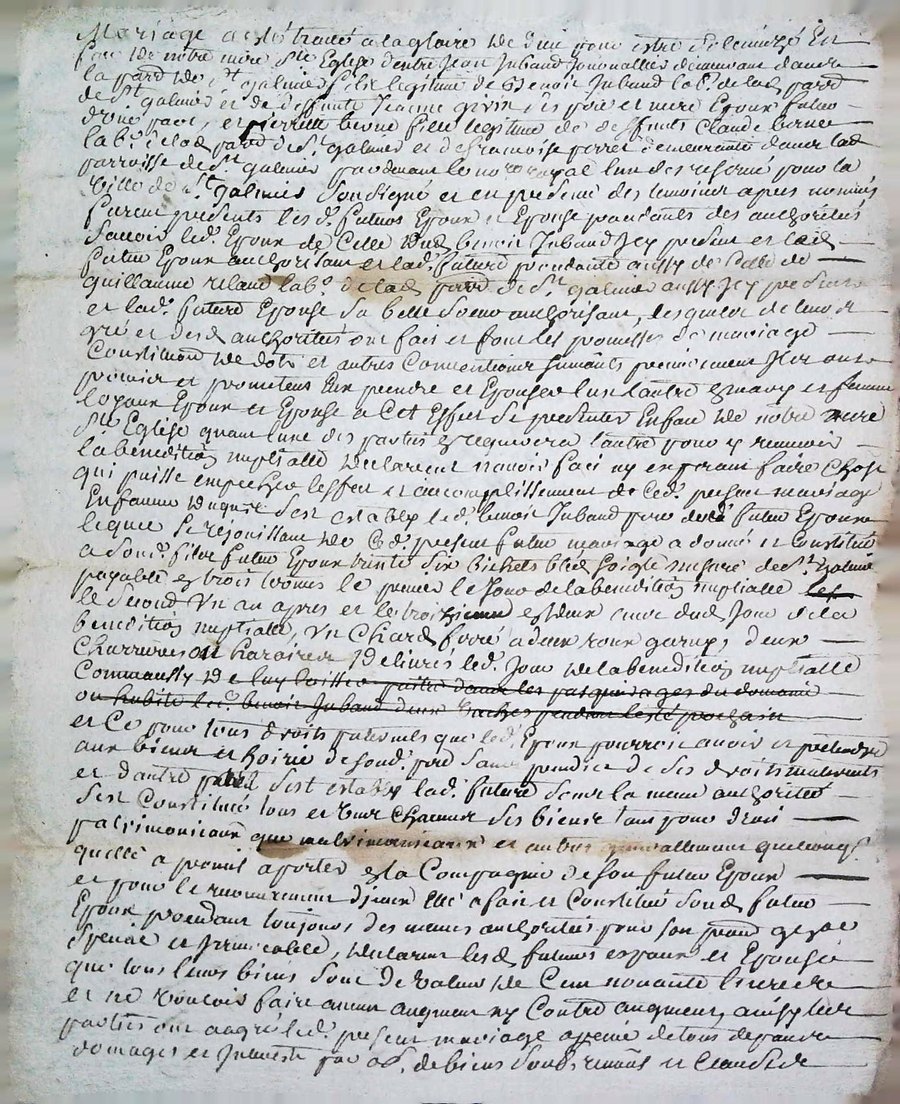 Mariage a esté traitté a la gloire de dieu pour estre solemnizé En
face de notre mere Ste Eglise d'entre Jean Jubaud Journallier demeurant dans
la parr de St galmier fils legitime de Benoist Jubaud labr de lad parr
de St galmier et de deffunte Jeanne grivin, ses pere et mere Epoux futur
d'une part, et pierrette berne fille legitime de deffunts Claude berne
labr de lad parr de St galmier et de francoise perret demeurante dans lad
parroisse de St galmier pardevant le nore royal lun des reservé pour la
Ville de St galmier soussigné et en presence des temoins apres nommés
furent presents les ds futurs Epoux et Epouse procedants des authorités
Sauoir led. Epoux de Celle dud benoist Jubaud Icy present et led
futur Epoux authorisant et lad. future procedante aussy de Celle de
guillaume relaud labr de lad parr de St galmier aussy Icy present
et lad. future Epouse sa belle soeur authorisant, lesquels de leur
gré et desd authorités ont fait et font les promesses de mariage
Constitution de dote et autres Conventions suivants premierement Iceux
premier et prometent Se prendre et Epouser lun l'autre en mary et femme
loyaux Epoux et Epouse a Cet Effet Se presenter En face de notre mere
Ste Eglise quant lune des parties en requerera l'autre pour y recevoir
la benediction nuptialle declarent n'avoir fait ny esperant faire Chose
qui puisse empecher leffet et accomplissement de led. present mariage
En faveur duquel s'est estably led. benoist Jubaud pere dud futur Epoux
lequel Se rejouissant de Cd. present futur mariage a donné et Constitué
a sond. fils futur Epoux trente Six bichets bled Seigle mesure de St Galmier
payable en trois termes le premier le Jour de la benediction nuptialle les
le Second Un an apres et le troisieme en deux ans dud Jour de la
benediction nuptialle, Un Chard ferré a deux roues garny, deux
Charrues ou haraires delivrés led. Jour de la benediction nuptialle
Comme aussy de luy laisser paitre dans les pasquerages du domaine
ou habite led. benoist Jubaud deux vaches pendant l'esté prochain
et Ce pour tous droits paternels que led. Epoux pourroit avoir et pretendre
aux biens et hoirie de sond. pere Sans prejudice de ses droits maternels
et d'autre part s'est estably lad. future Sous la meme authorité
s'est Constituée tous et Un Chacun ses biens tant pour droit
patrimoniaux que matrimoniaux et autres generallement quelconqs
quelle a promis aporter en la Compagnie de son futur Epoux
et pour le recouvrement d'iceux Elle a fait et Constitué Sond. futur
Epoux procedant toujours des memes authorités pour son procur general
Special et Irrevocable, declarent lesd futurs epoux et Epouse
que tous leurs biens sont de valeur de Cent nonante livres
et ne vouloir faire aucun augment ny Contre augment, ainsy les
parties ont aggréé led. present mariage a peine de tous depens
domages et Interests par obl. de biens soubmissions et Clauses